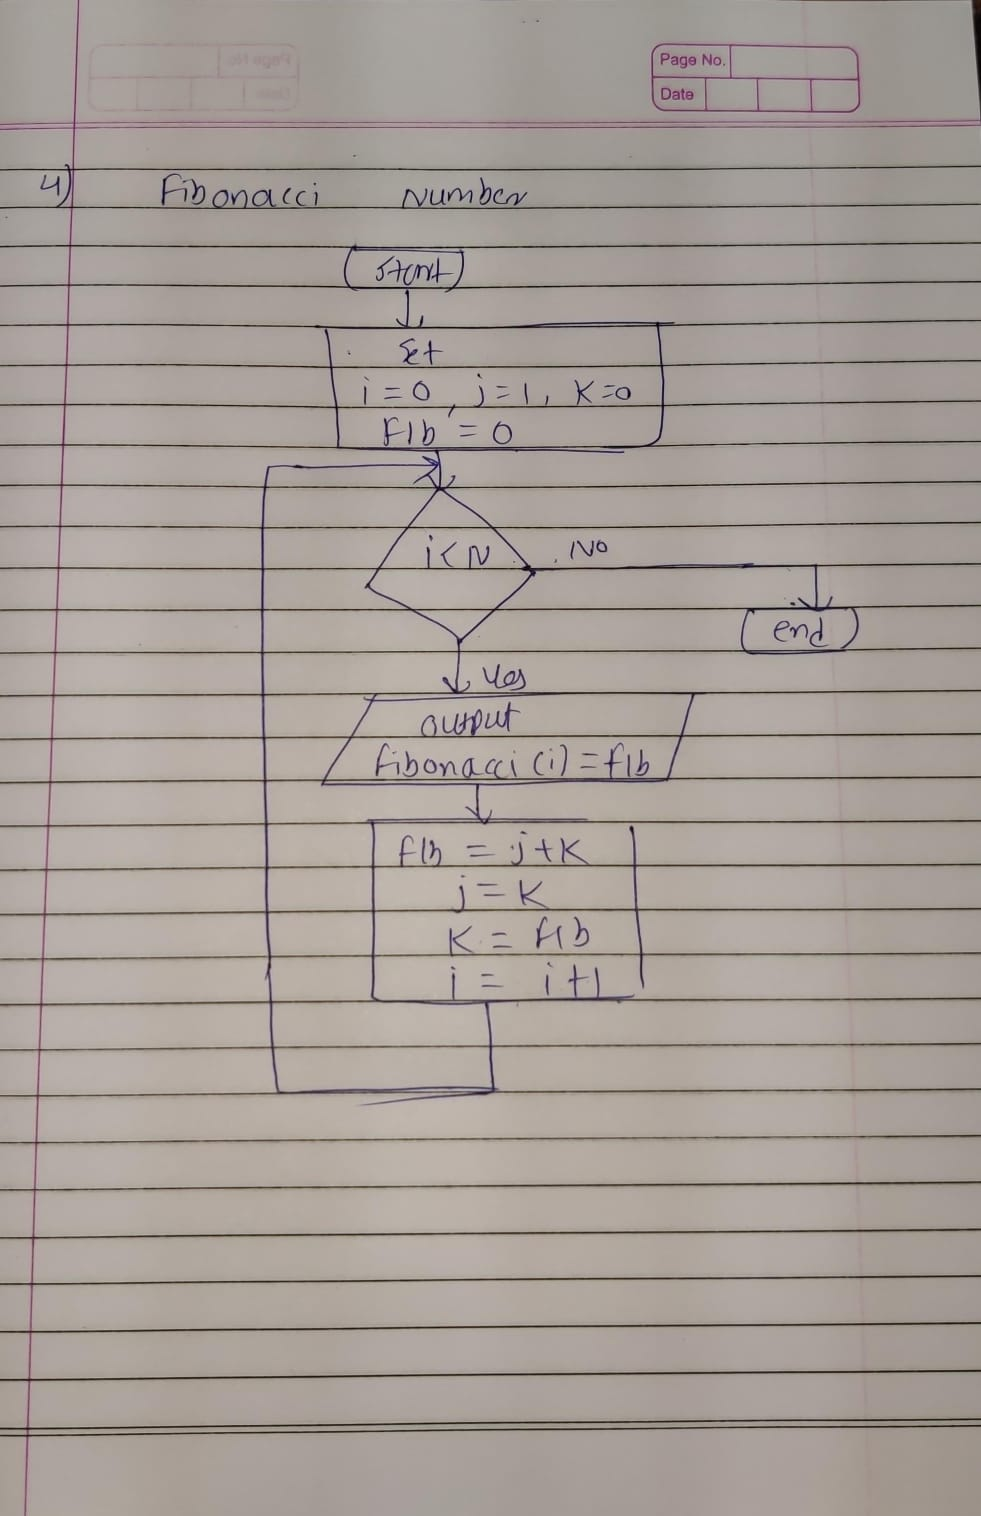 Page No.
Date
4) Fibonacci Number
Start
Set
i = 0, j = 1, K = 0
FIb = 0
i < N
No
end
Yes
output
fibonacci (i) = fIb
fIb = j + K
j = K
K = fIb
i = i + 1